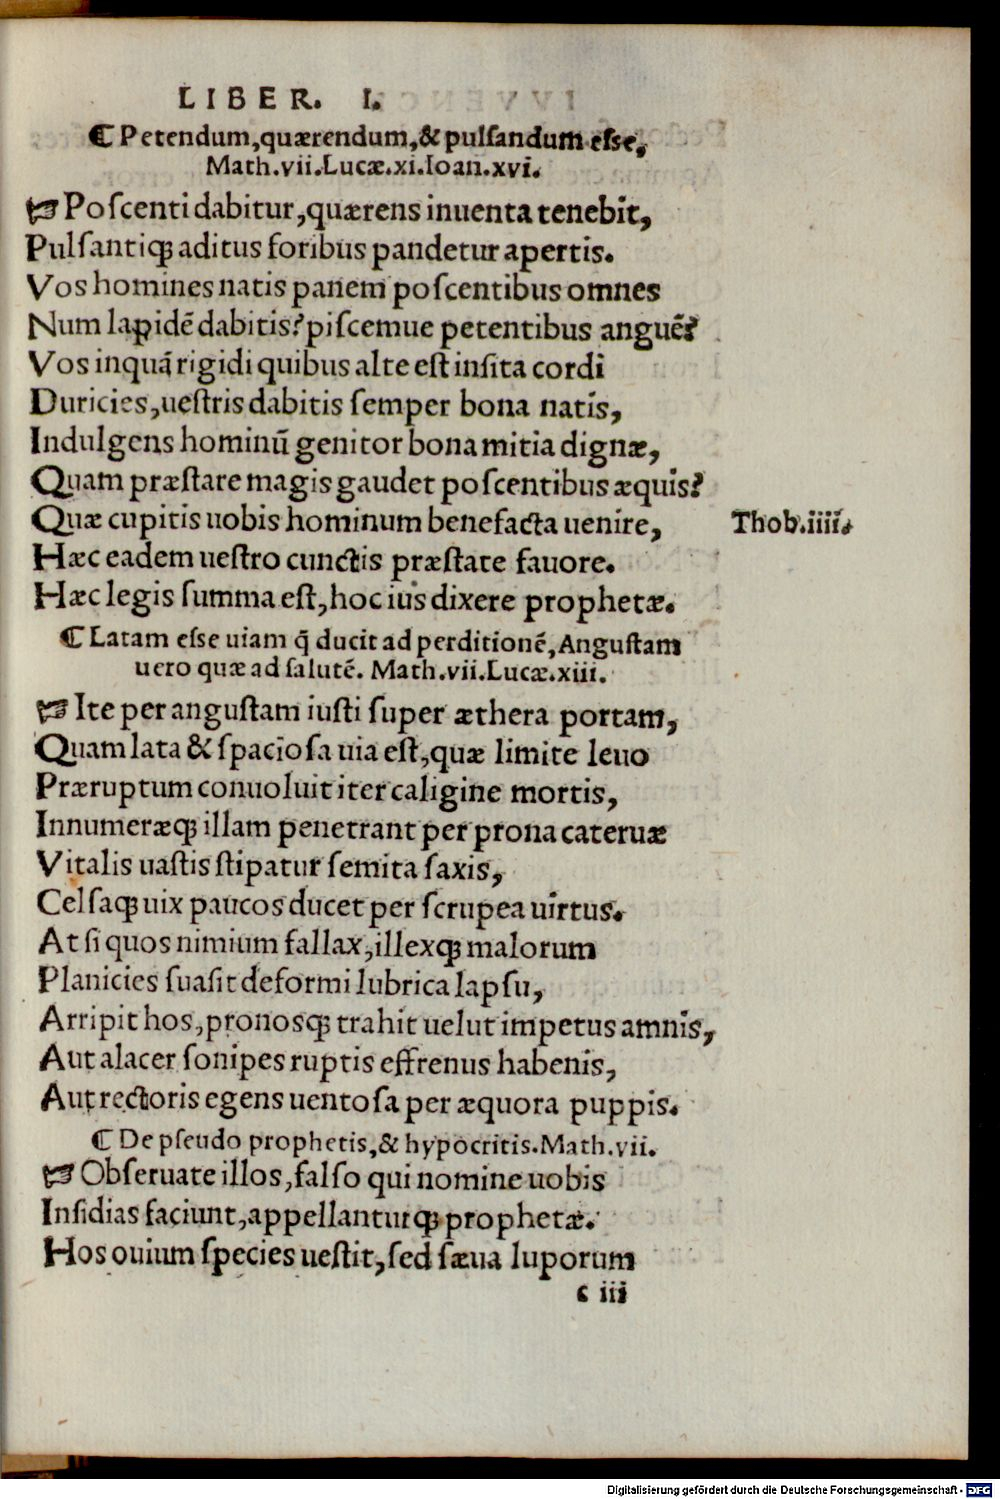 LIBER. I.
¶ Petendum, quærendum, & pulsandum esse,
Math.vii.Lucæ.xi.Ioan.xvi.
☞ Poſcenti dabitur, quærens inuenta tenebit,
Pulſantiqꝫ aditus foribus pandetur apertis.
Vos homines natis panem poſcentibus omnes
Num lapidē dabitis? piſcemue petentibus anguē?
Vos inquā rigidi quibus alte eſt inſita cordi
Duricies, ueſtris dabitis ſemper bona natis,
Indulgens hominū genitor bona mitia dignæ,
Quam præſtare magis gaudet poſcentibus æquis?
Quæ cupitis uobis hominum benefacta uenire,
Thob.iiii.
Hæc eadem ueſtro cunctis præſtate fauore.
Hæc legis ſumma eſt, hoc ius dixere prophetæ.
¶ Latam eſſe uiam q̄ ducit ad perditionē, Anguſtam
uero quæ ad ſalutē. Math.vii.Lucæ.xiii.
☞ Ite per anguſtam iuſti ſuper æthera portam,
Quam lata & ſpacioſa uia eſt, quæ limite leuo
Præruptum conuoluit iter caligine mortis,
Innumeræqꝫ illam penetrant per prona cateruæ
Vitalis uaſtis ſtipatur ſemita ſaxis,
Celſaqꝫ uix paucos ducet per ſcrupea uirtus.
At ſi quos nimium fallax, illexqꝫ malorum
Planicies ſuaſit deformi lubrica lapſu,
Arripit hos, pronosqꝫ trahit uelut impetus amnis,
Aut alacer ſonipes ruptis effrenus habenis,
Aut rectoris egens uentoſa per æquora puppis.
¶ De pſeudo prophetis, & hypocritis. Math.vii.
☞ Obſeruate illos, falſo qui nomine uobis
Inſidias faciunt, appellanturqꝫ prophetæ.
Hos ouium ſpecies ueſtit, ſed ſæua luporum
c iii
Digitalisierung gefördert durch die Deutsche Forschungsgemeinschaft - DFG